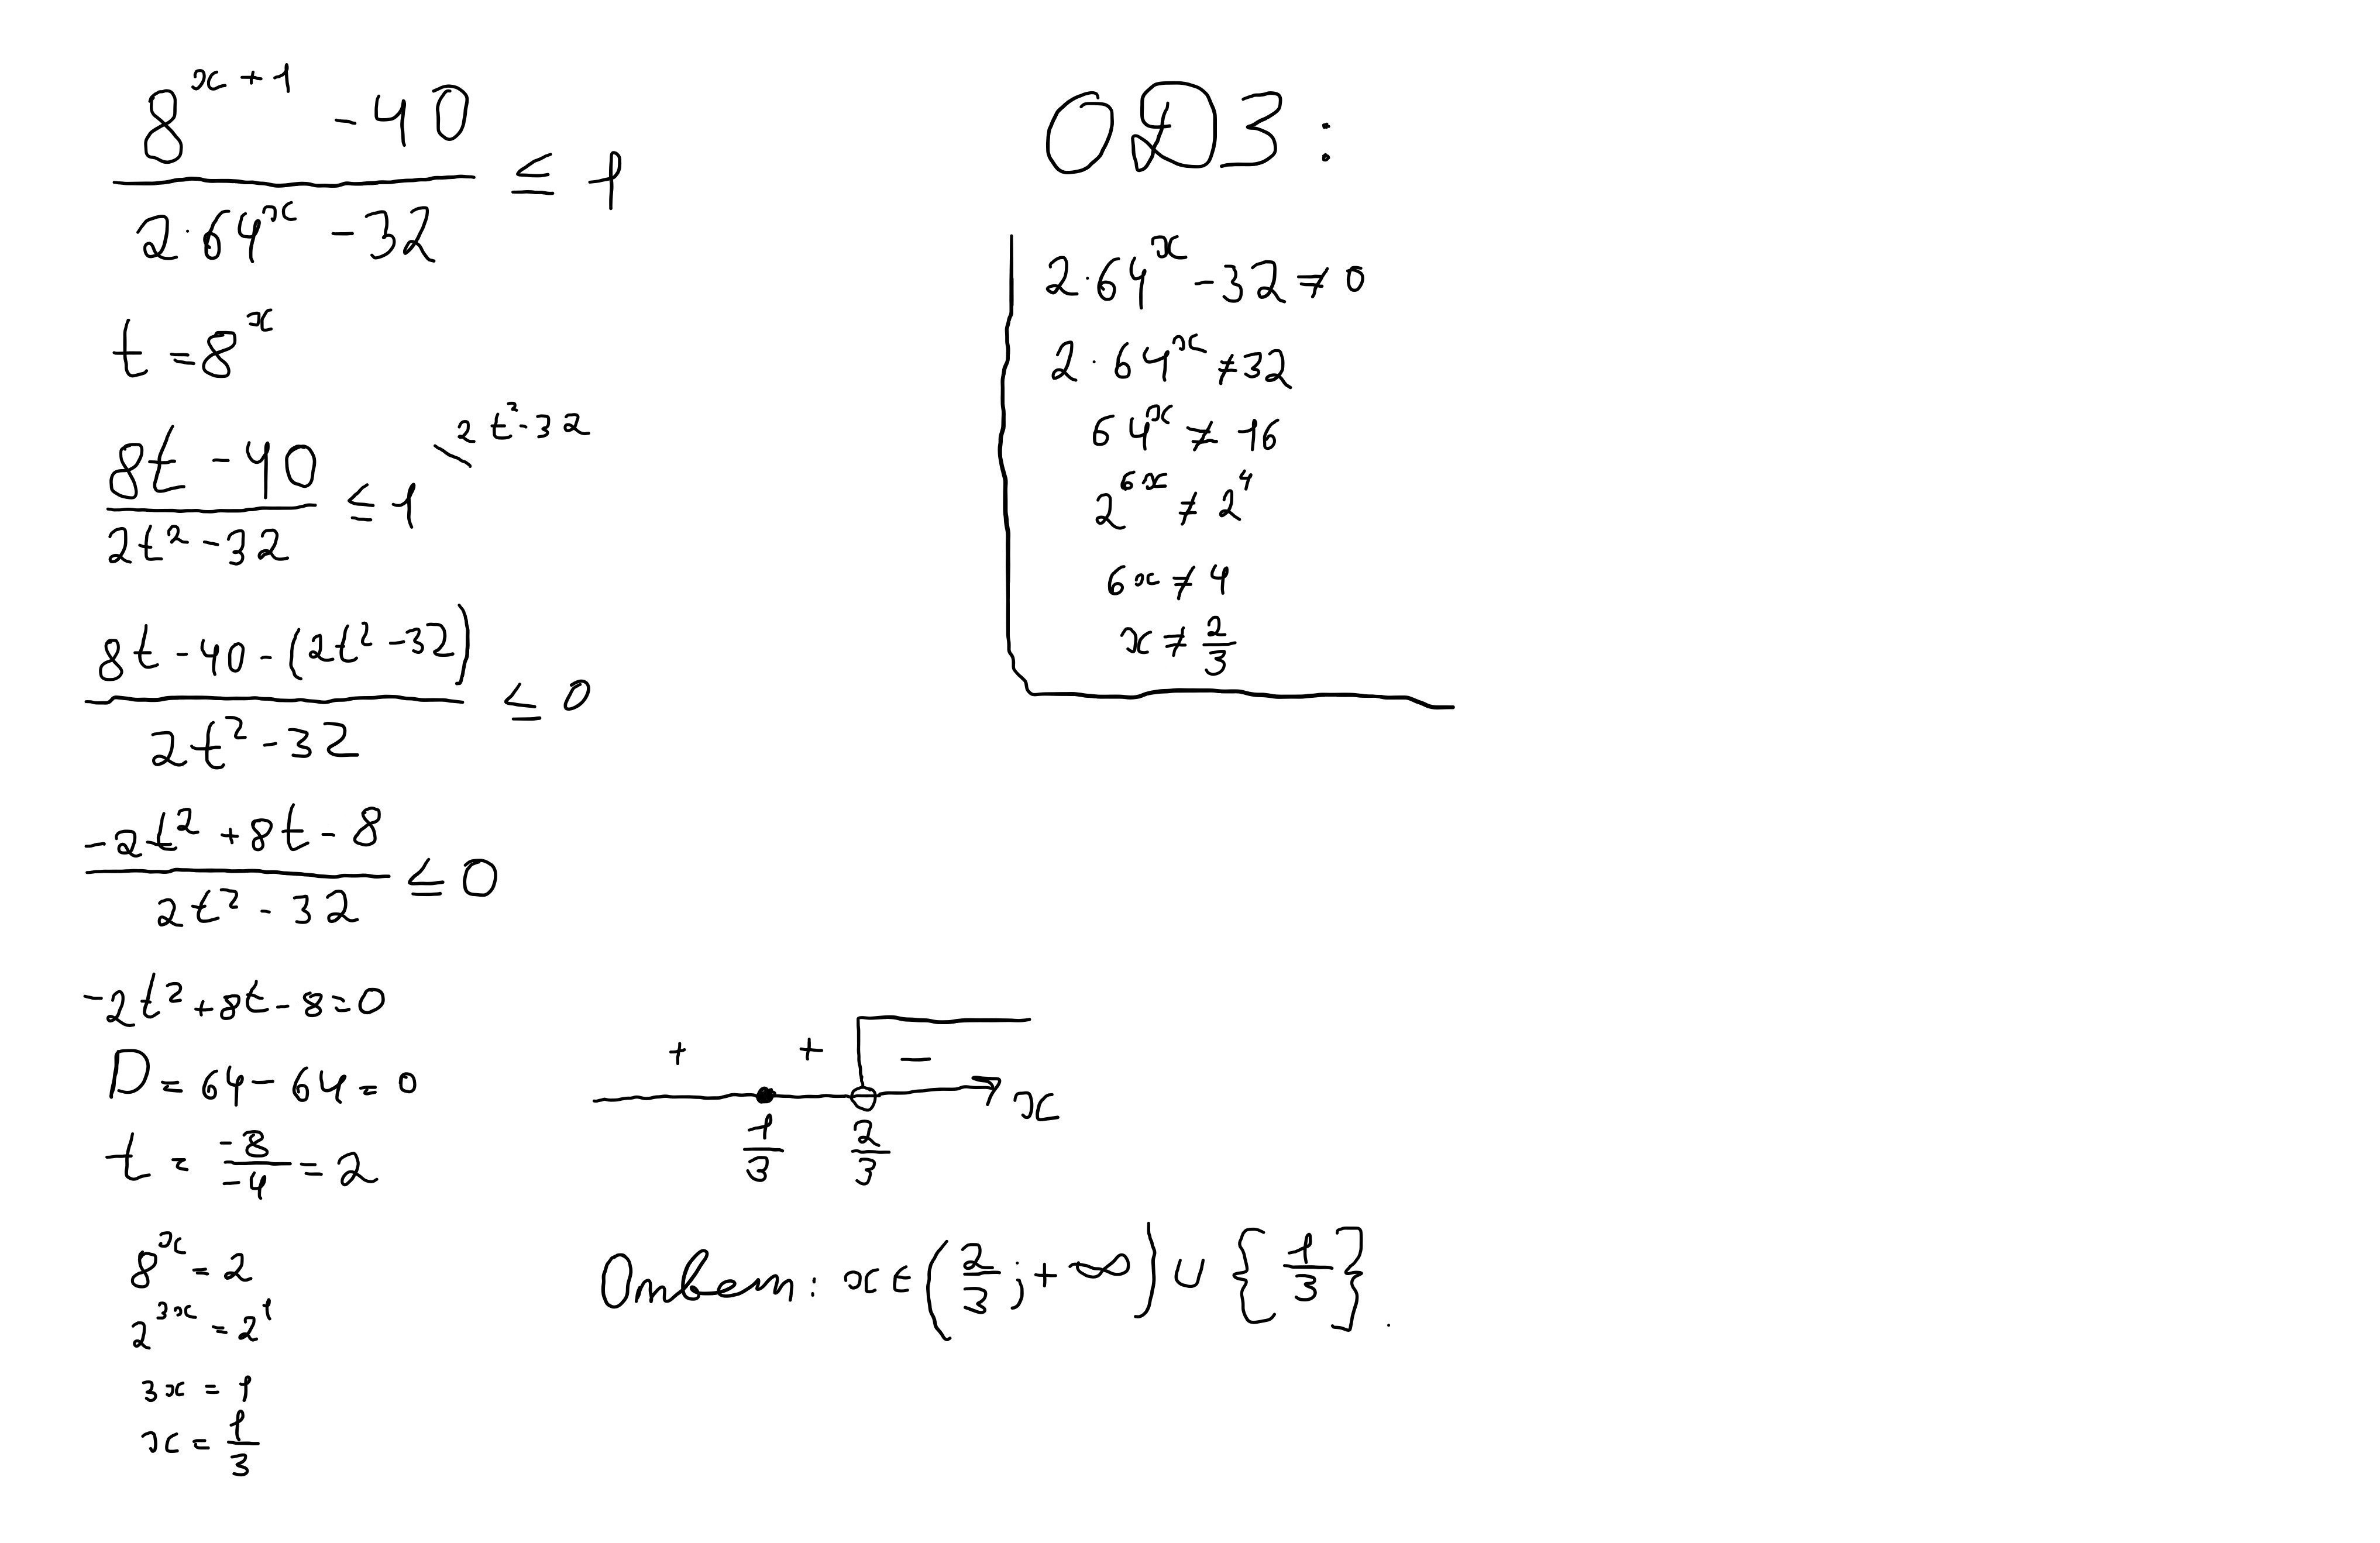 (8^(x+1) - 40)/(2·64^x - 32) ≤ 1
t = 8^x
(8t - 40)/(2t² - 32) ≤ 1 \ 2t² - 32
(8t - 40 - (2t² - 32))/(2t² - 32) ≤ 0
(-2t² + 8t - 8)/(2t² - 32) ≤ 0
-2t² + 8t - 8 = 0
D = 64 - 64 = 0
t = -8/-4 = 2
8^x = 2
2^(3x) = 2^1
3x = 1
x = 1/3
ОДЗ:
2·64^x - 32 ≠ 0
2·64^x ≠ 32
64^x ≠ 16
2^(6x) ≠ 2^4
6x ≠ 4
x ≠ 2/3
+ + -
x
1/3 2/3
Ответ: x ∈ (2/3; +∞) ∪ {1/3}.